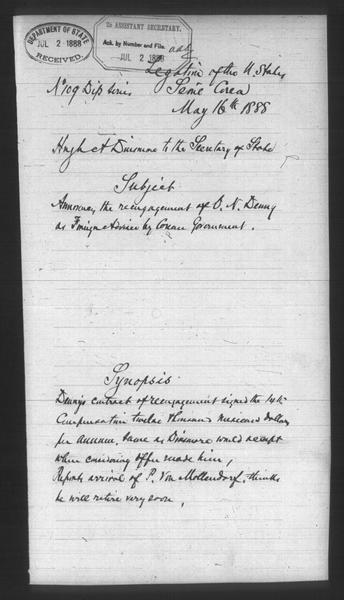 DEPARTMENT OF STATE
JUL 2 1888
RECEIVED.
2D ASSISTANT SECRETARY.
Ack. by Number and File.
JUL 2 1888
Legation of the U. States
No 109 Dip Series Seoul Corea
May 16th 1888
Hugh A Dinsmore to the Secretary of State
Subject
Announces the reengagement of O. N. Denny
as Foreign Adviser by Corean Government.
Synopsis
Denny's contract of reengagement signed the 14th
Compensation twelve thousand Mexican dollars
per annum. Same as Dinsmore would accept
when considering offer made him,
Reports arrival of P. Von Mollendorf. thinks
he will retire very soon.